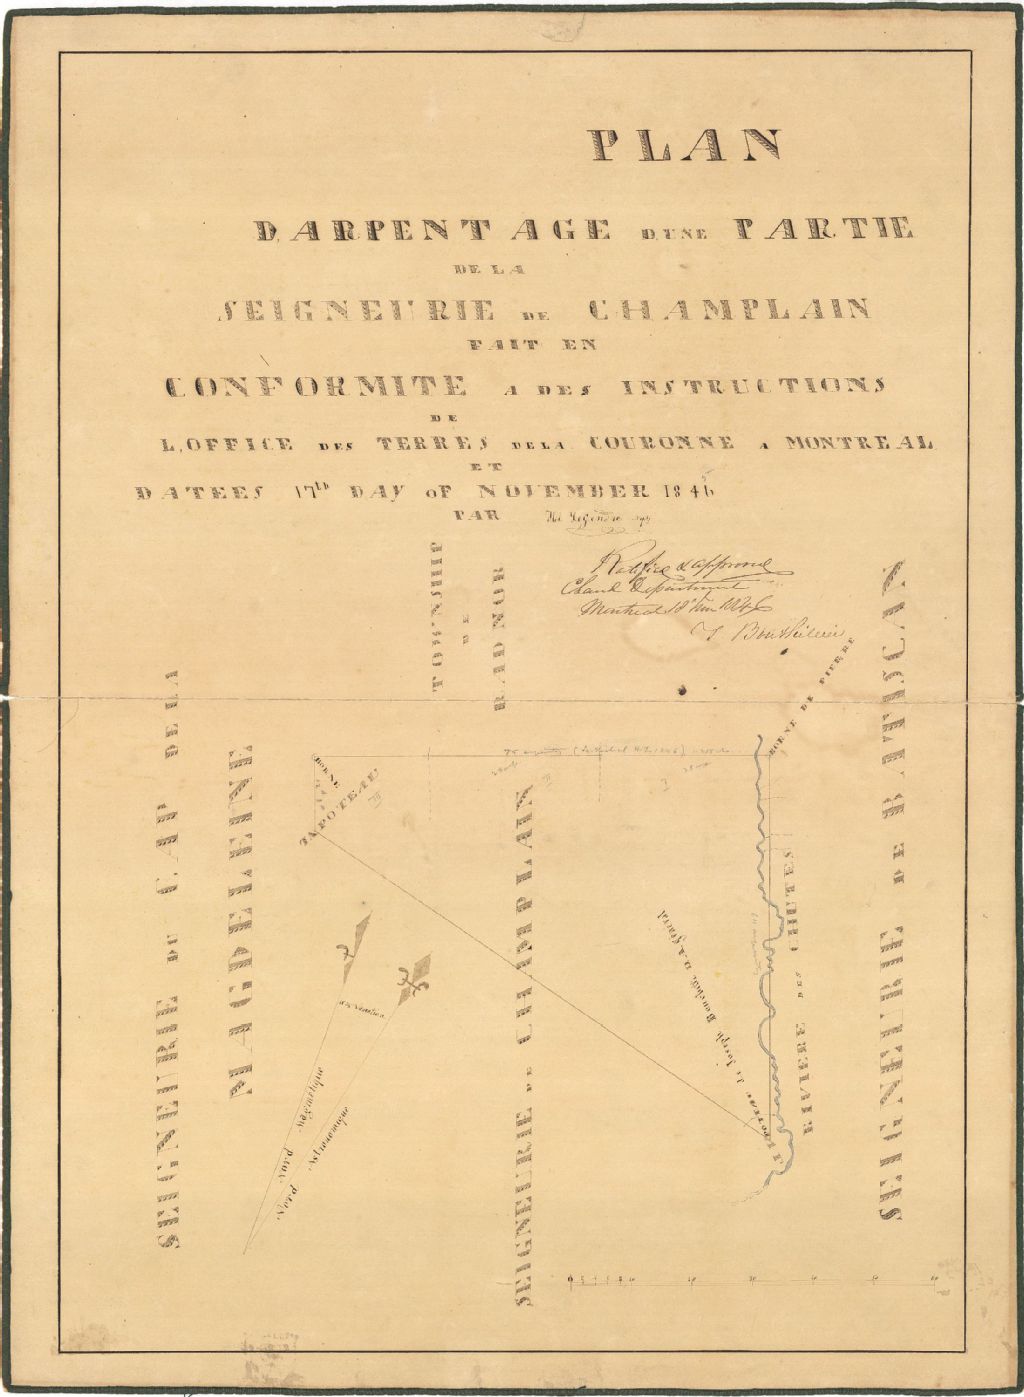 PLAN
D,ARPENTAGE D,UNE PARTIE
DE LA
SEIGNEURIE DE CHAMPLAIN
FAIT EN
CONFORMITE A DES INSTRUCTIONS
DE
L,OFFICE DES TERRES DE LA COURONNE A MONTREAL
ET
DATEES 17th DAY OF NOVEMBER 1845
PAR
Legendre
Ratified & approved
Montreal 18
T Bouthillier
TOWNSHIP
DE
RADNOR
BORNE DE PIERRE
SEIGNEURIE DE BATISCAN
SEIGNEURIE DU CAP DE LA
MAGDELEINE
BORNE
POTEAU
III
II
I
SEIGNEURIE DE CHAMPLAIN
RIVIERE DES CHUTES
Poteau de Joseph
Nord Magnétique
Nord Astronomique